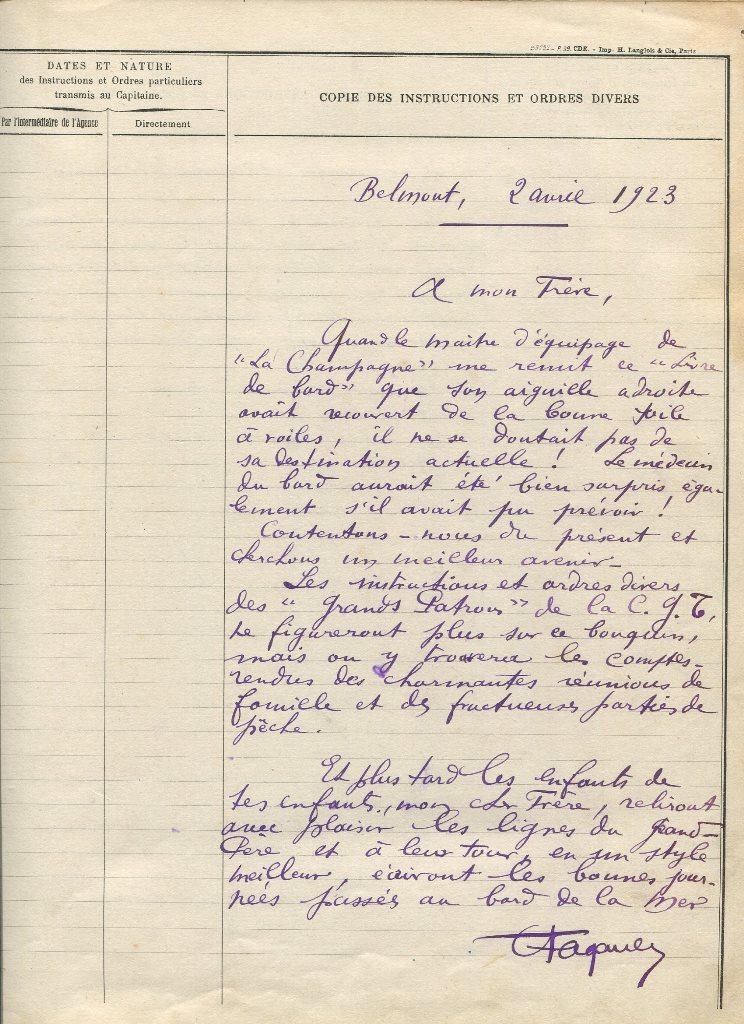 CDE. - Imp. H. Langlois & Cie, Paris
DATES ET NATURE
des Instructions et Ordres particuliers
transmis au Capitaine.
Par l'intermédiaire de l'Agence
Directement
COPIE DES INSTRUCTIONS ET ORDRES DIVERS
Belmont, 2 avril 1923
A mon Frère,
Quand le maitre d'équipage de
"La Champagne" me remit ce "Livre
de bord" que son aiguille adroite
avait recouvert de la bonne toile
à voiles, il ne se doutait pas de
sa destination actuelle ! Le médecin
du bord aurait été bien surpris, éga-
lement s'il avait pu prévoir !
Contentons-nous du présent et
cherchons un meilleur avenir_
Les instructions et ordres divers
des "Grands Patrons" de la C. G. T,
ne figureront plus sur ce bouquin,
mais on y trouvera les comptes-
rendus des charmantes réunions de
famille et des fructueuses parties de
pêche.
Et plus tard les enfants de
tes enfants, mon cher Frère, reliront
avec plaisir les lignes du Grand-
Père et à leur tour, en un style
meilleur, écriront les bonnes jour-
nées passées au bord de la Mer